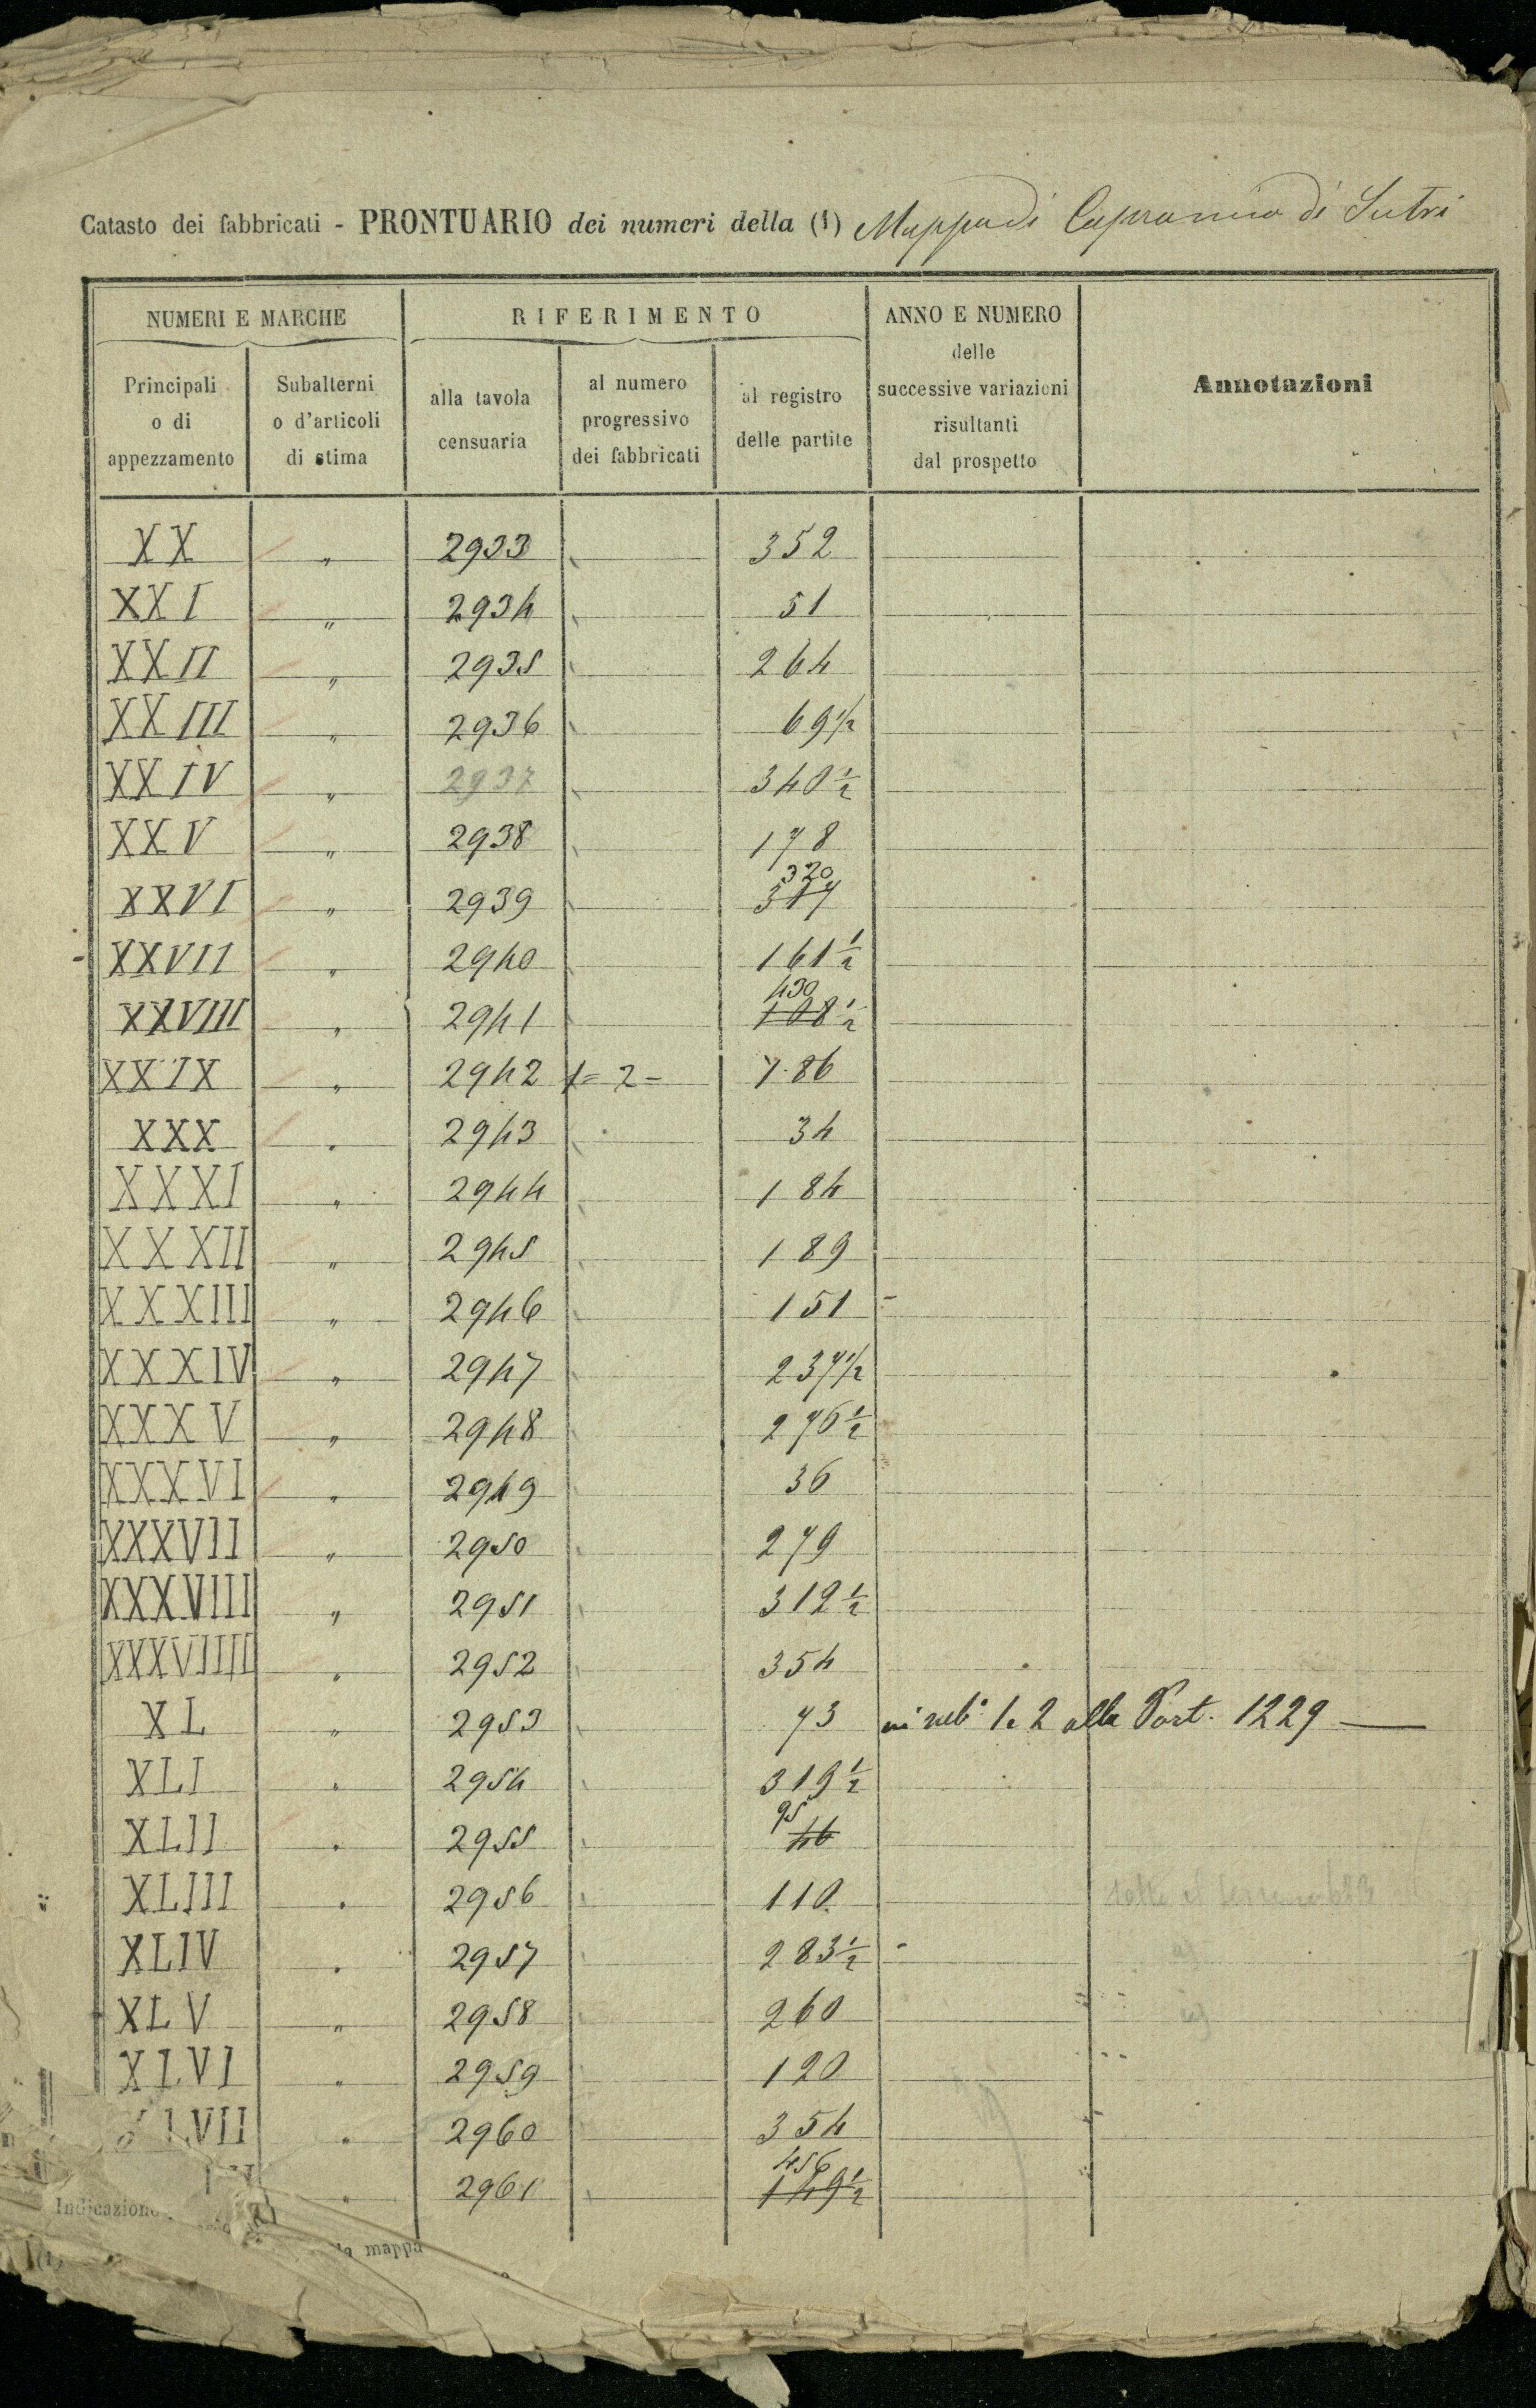 Catasto dei fabbricati - PRONTUARIO dei numeri della (1) Mappa di Capranica di Sutri
NUMERI E MARCHE
RIFERIMENTO
ANNO E NUMERO
delle
successive variazioni
risultanti
dal prospetto
Annotazioni
Principali
o di
appezzamento
Subalterni
o d'articoli
di stima
alla tavola
censuaria
al numero
progressivo
dei fabbricati
al registro
delle partite
XX " 2933 352
XXI " 2934 51
XXII " 2935 264
XXIII " 2936 69 1/2
XXIV " 2937 340 1/2
XXV " 2938 178
XXVI " 2939 320 317
XXVII " 2940 161 1/2
XXVIII " 2941 430 108 1/2
XXIX " 2942 1 = 2 - 786
XXX " 2943 34
XXXI " 2944 184
XXXII " 2945 189
XXXIII " 2946 151
XXXIV " 2947 237 1/2
XXXV " 2948 276 1/2
XXXVI " 2949 36
XXXVII " 2950 279
XXXVIII " 2951 312 1/2
XXXVIIII " 2952 354
XL " 2953 73 1. 2 alla Part. 1229
XLI " 2954 319 1/2
XLII " 2955 95 46
XLIII " 2956 110
XLIV " 2957 283 1/2
XLV " 2958 260
XLVI " 2959 120
LVII " 2960 354
" 2961 456 149 1/2
Indicazione
mappa
(1)